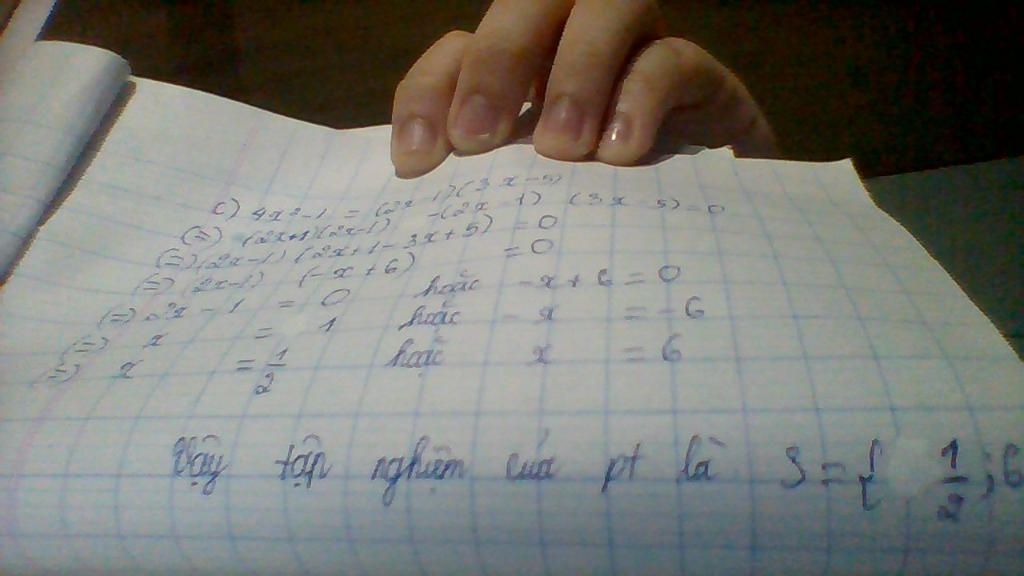 c) 4x²-1 = (2x-1)(3x-5)
(=) (2x+1)(2x-1) -(2x-1) (3x-5)=0
(=) (2x-1) (2x+1-3x+5) =0
(=) 2x-1) (-x+6) =0
(=) 2x-1 = 0 hoặc -x+6=0
(=) x = 1 hoặc -x =-6
(=) x =1/2 hoặc x =6
Vậy tập nghiệm của pt là S={ 1/2;6